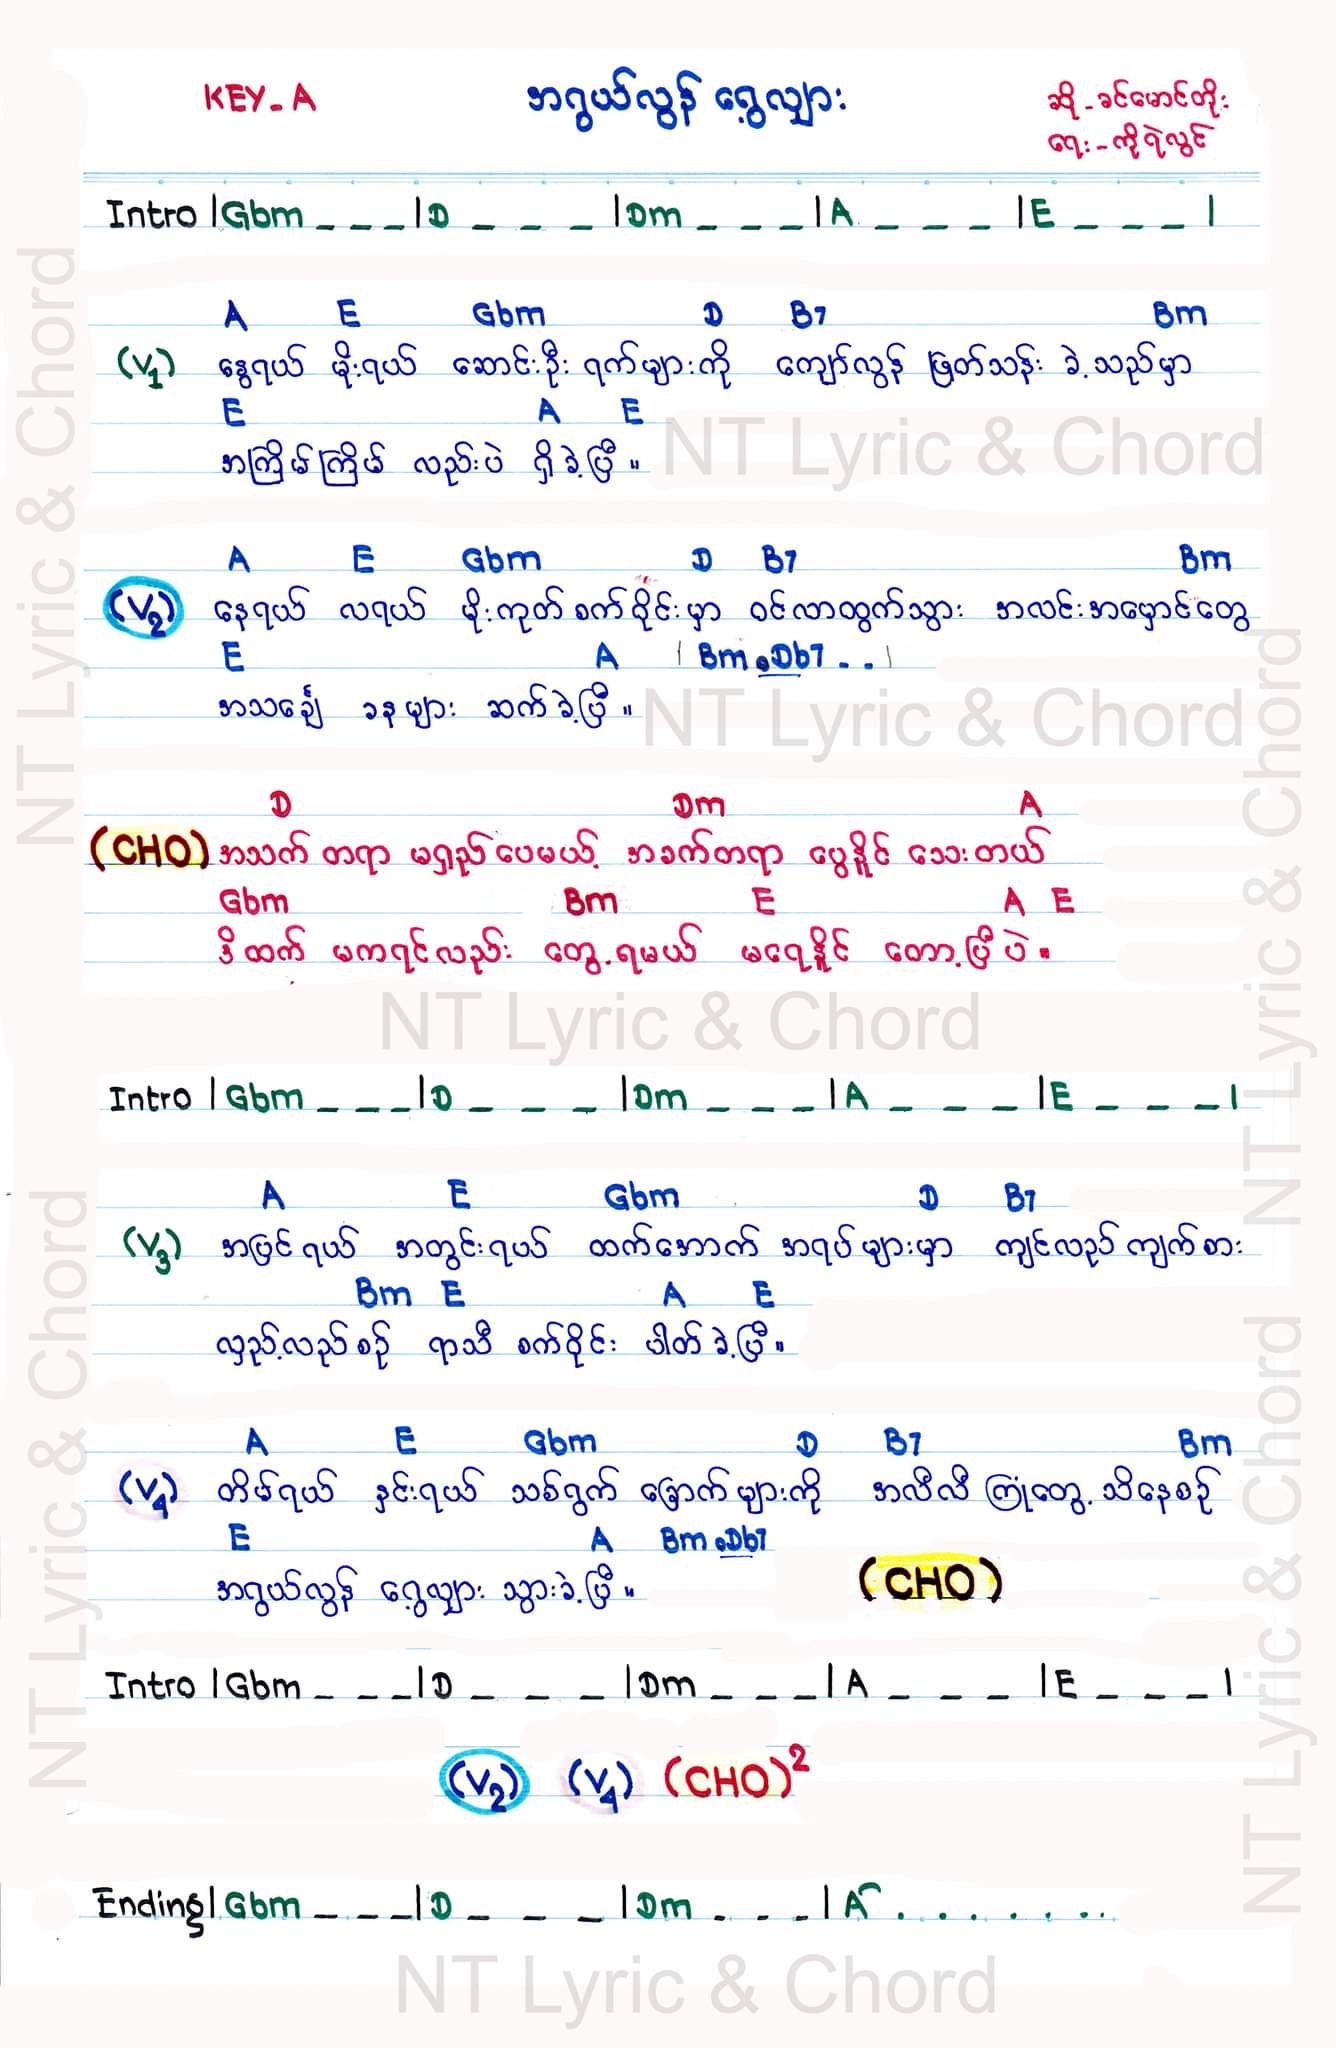 KEY-A
အရွယ်လွန် ရွေ့လျှား
ဆို-ခင်မောင်တိုး
ရေး-ကိုရဲလွင်
Intro |Gbm _ _ _|D _ _ _ |Dm _ _ _|A _ _ _ |E _ _ _ |
A E Gbm D B7 Bm
(V1) နွေရယ် မိုးရယ် ဆောင်းဦး ရက်များကို ကျော်လွန် ဖြတ်သန်း ခဲ့သည်မှာ
E A E
အကြိမ်ကြိမ် လည်းပဲ ရှိခဲ့ပြီ။
NT Lyric & Chord
A E Gbm D B7 Bm
(V2) နေရယ် လရယ် မိုးကုတ်စက်ဝိုင်းမှာ ဝင်လာထွက်သွား အလင်းအမှောင်တွေ
E A | Bm.Db7 . . |
အသင်္ချေ ခနများ ဆက်ခဲ့ပြီ။
NT Lyric & Chord
D Dm A
(CHO) အသက် တရာ မရှည်ပေမယ့် အခက်တရာ မွေနိုင် သေးတယ်
Gbm Bm E A E
ဒီထက် မကရင်လည်း တွေ့ရမယ် မရေနိုင် တော့ပြီပဲ။
NT Lyric & Chord
Intro |Gbm _ _ _|D _ _ _ |Dm _ _ _|A _ _ _ |E _ _ _|
A E Gbm D B7
(V3) အပြင်ရယ် အတွင်းရယ် ထက်အောက် အရပ်များမှာ ကျင်လည် ကျက်စား
Bm E A E
လှည့်လည်စဉ် ရာသီ စက်ဝိုင်း ပါတ်ခဲ့ပြီ။
A E Gbm D B7 Bm
(V4) တိမ်ရယ် နှင်းရယ် သစ်ရွက် ခြောက်များကို အလီလီ ကြုံတွေ့ သိနေစဉ်
E A Bm.Db7
အရွယ်လွန် ရွေ့လျှား သွားခဲ့ပြီ။ (CHO)
Intro |Gbm _ _ _|D _ _ _ |Dm _ _ _|A _ _ _ |E _ _ _|
(V2) (V4) (CHO)²
Ending |Gbm _ _ _|D _ _ _ |Dm . _ _ |A . . . . . . . .
NT Lyric & Chord
NT Lyric & Chord
NT Lyric & Chord
NT Lyric & Chord
NT Lyric & Chord